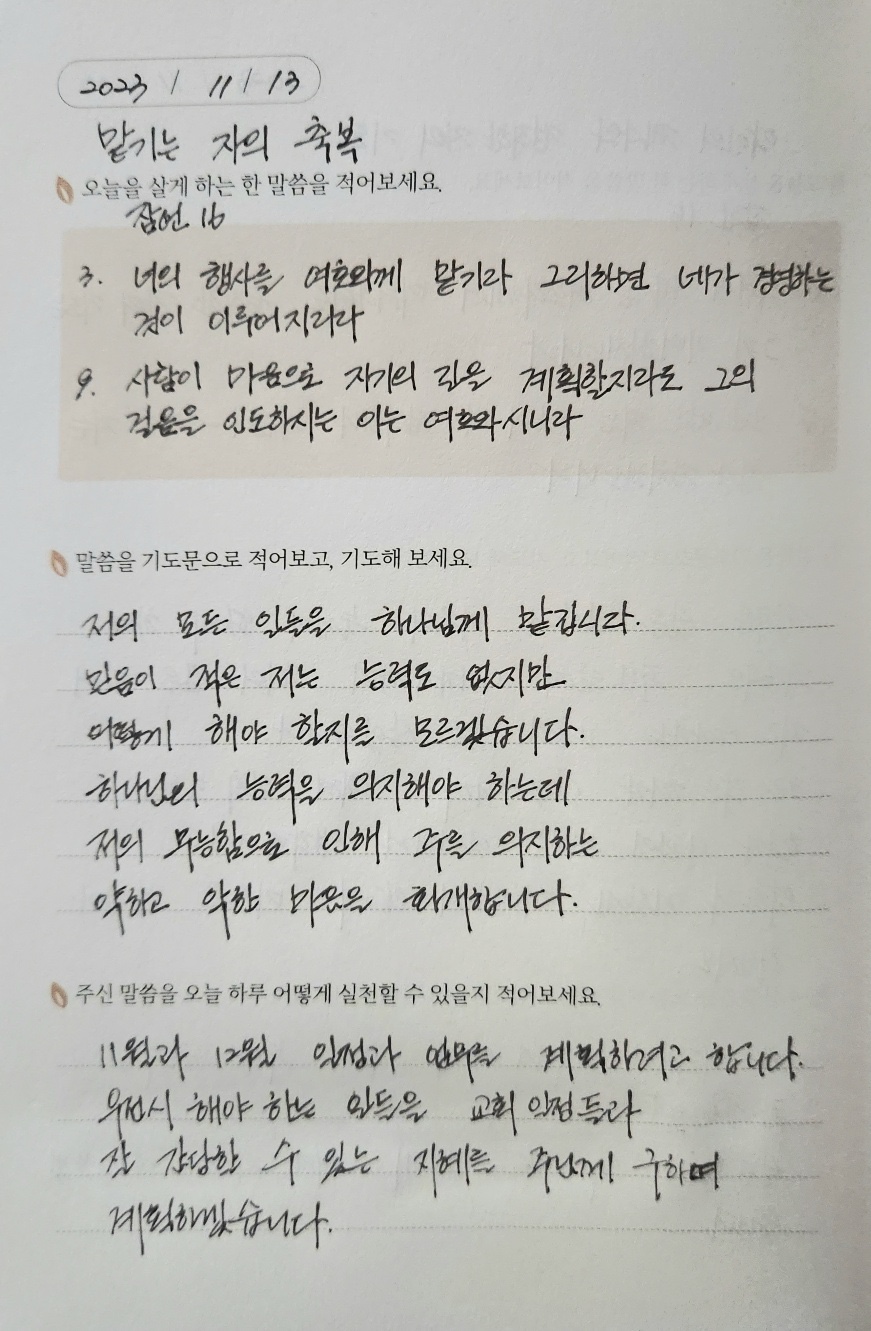 2023 / 11 / 13
맡기는 자의 축복
오늘을 살게 하는 한 말씀을 적어보세요.
잠언 16
3. 너의 행사를 여호와께 맡기라 그리하면 네가 경영하는
것이 이루어지리라
9. 사람이 마음으로 자기의 길을 계획할지라도 그의
걸음을 인도하시는 이는 여호와시니라
말씀을 기도문으로 적어보고, 기도해 보세요.
저의 모든 일들을 하나님께 맡깁니다.
믿음이 적은 저는 능력도 없지만
어떻게 해야 할지를 모르겠습니다.
하나님의 능력을 의지해야 하는데
저의 무능함으로 인해 주를 의지하는
약하고 악한 마음을 회개합니다.
주신 말씀을 오늘 하루 어떻게 실천할 수 있을지 적어보세요.
11월과 12월 일정과 업무를 계획하려고 합니다.
우선시 해야 하는 일들을 교회 일정들과
잘 감당할 수 있는 지혜를 주님께 구하며
계획하겠습니다.